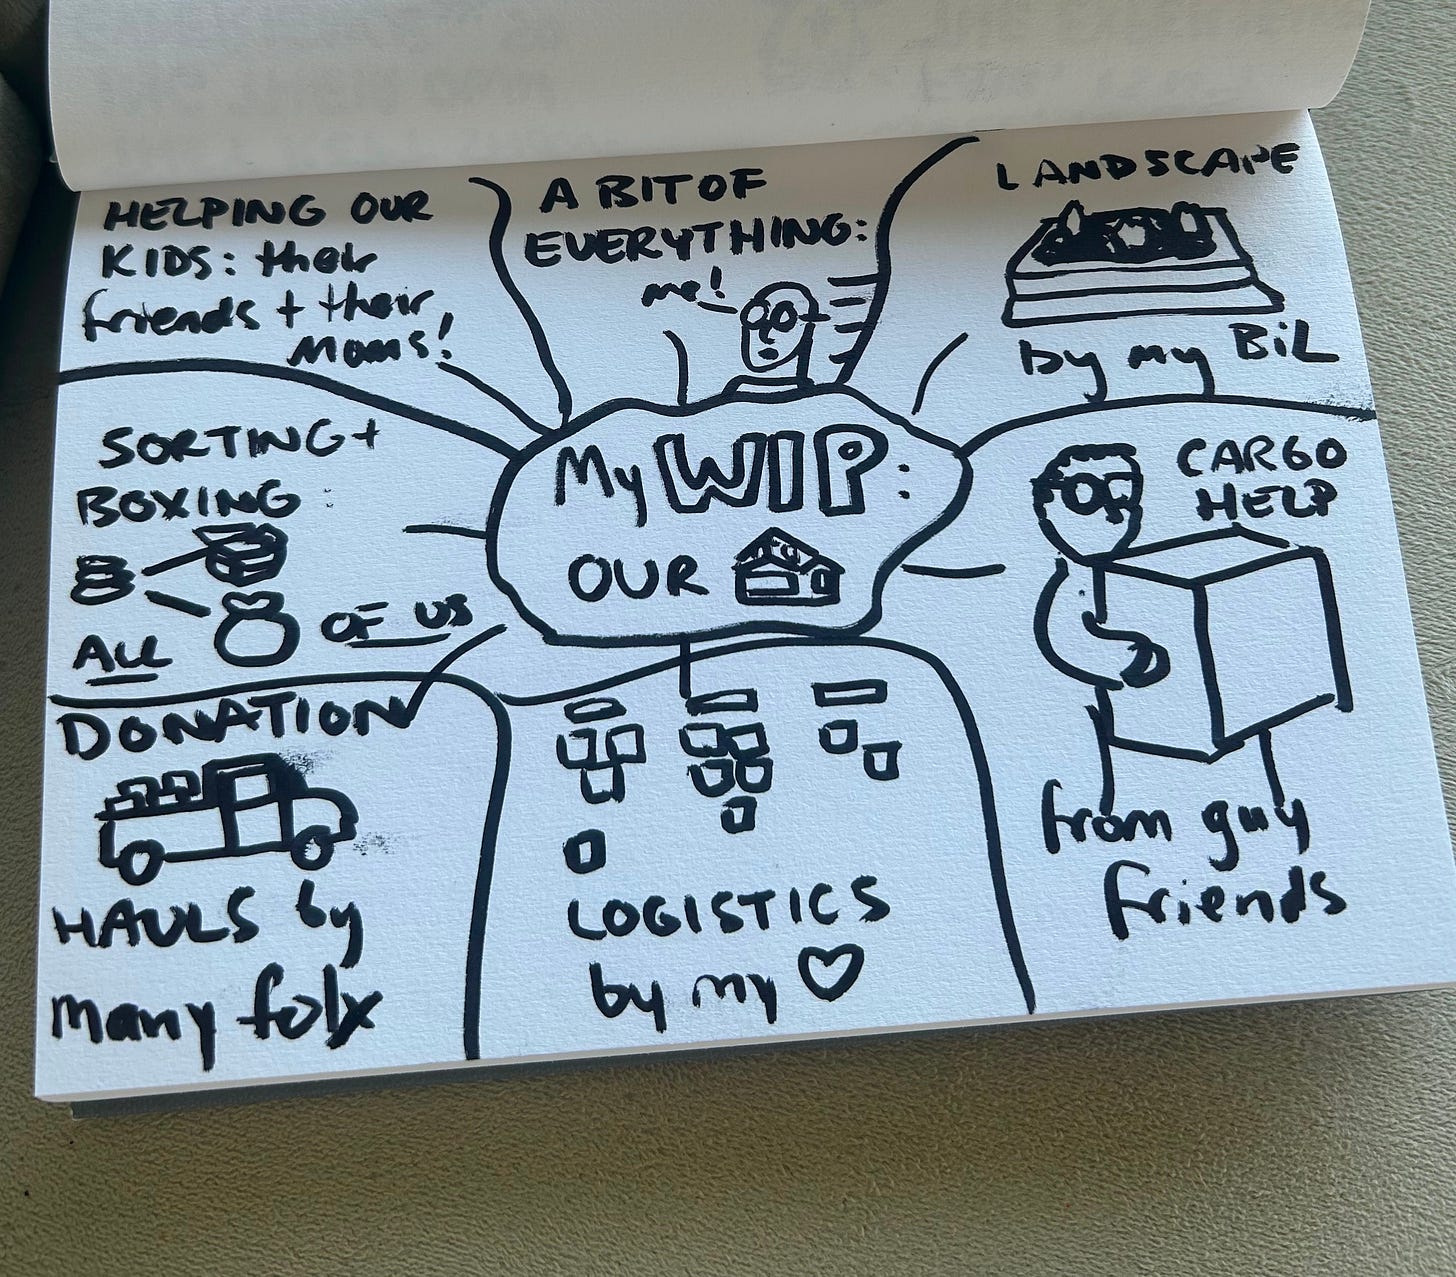 HELPING OUR
KIDS: their
friends + their
Moms!
A BIT OF
EVERYTHING:
me!
LANDSCAPE
by my BiL
SORTING +
BOXING :
ALL OF US
My WIP:
OUR
CARGO
HELP
from guy
friends
DONATION
HAULS by
many folx
LOGISTICS
by my ♡